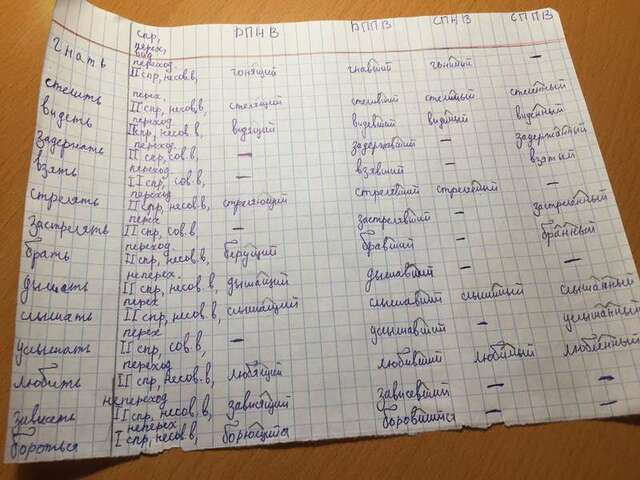 спр, ДПНВ ДППВ СПНВ СППВ
перех,
вид
гнать переход. II спр, несов.в, гонящий гнавший гонимый —
стелить перех. II спр, несов.в, стелящий стеливший стеленный
видеть переход II спр, несов.в, видящий видевший видимый виденный
задержать переход II спр, сов.в, — задержавший — задержанный
взять переход II спр, сов.в, — взявший — взятый
стрелять переход II спр, несов.в, стреляющий стрелявший стреляемый —
застрелять перех II спр, сов.в, — застрелявший — застреленный
брать переход II спр, несов.в, берущий бравший — бранный
дышать неперех. II спр, несов.в, дышащий дышавший — —
слышать перех II спр, несов.в, слышащий слышавший слышимый слышанный
услышать перех II спр, сов.в, — услышавший — услышанный
любить переход II спр, несов.в, любящий любивший любимый
зависеть непереход II спр, несов.в, зависящий зависевший — —
бороться неперех I спр, несов.в, борющийся боровшийся — —